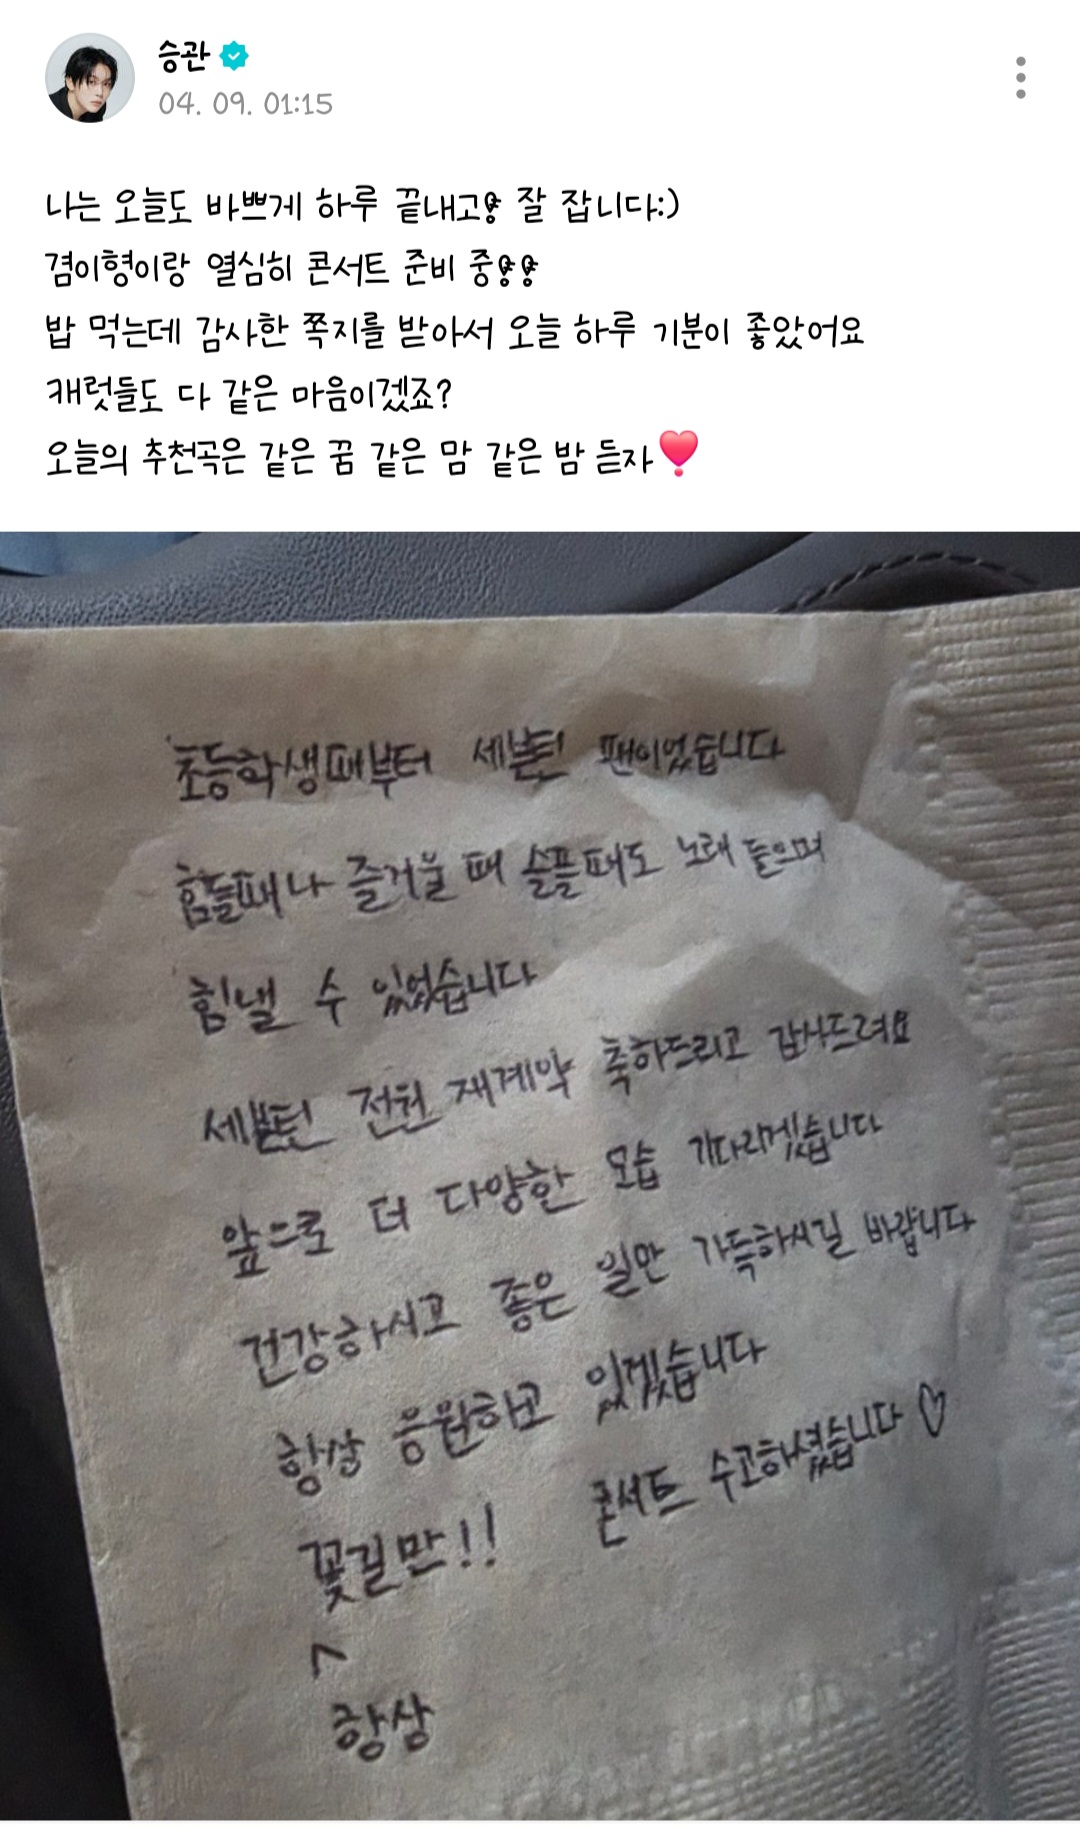 승관
04. 09. 01:15
나는 오늘도 바쁘게 하루 끝내고!! 잘 잡니다:)
겸이형이랑 열심히 콘서트 준비 중!!!!
밥 먹는데 감사한 쪽지를 받아서 오늘 하루 기분이 좋았어요
캐럿들도 다 같은 마음이겠죠?
오늘의 추천곡은 같은 꿈 같은 맘 같은 밤 듣자❣️
초등학생때부터 세븐틴 팬이었습니다
힘들때나 즐거울 때 슬플때도 노래 들으며
힘낼 수 있었습니다
세븐틴 전원 재계약 축하드리고 감사드려요
앞으로 더 다양한 모습 기다리겠습니다
건강하시고 좋은 일만 가득하시길 바랍니다
항상 응원하고 있겠습니다
꽃길만!! 콘서트 수고하셨습니다 ♡
^
항상